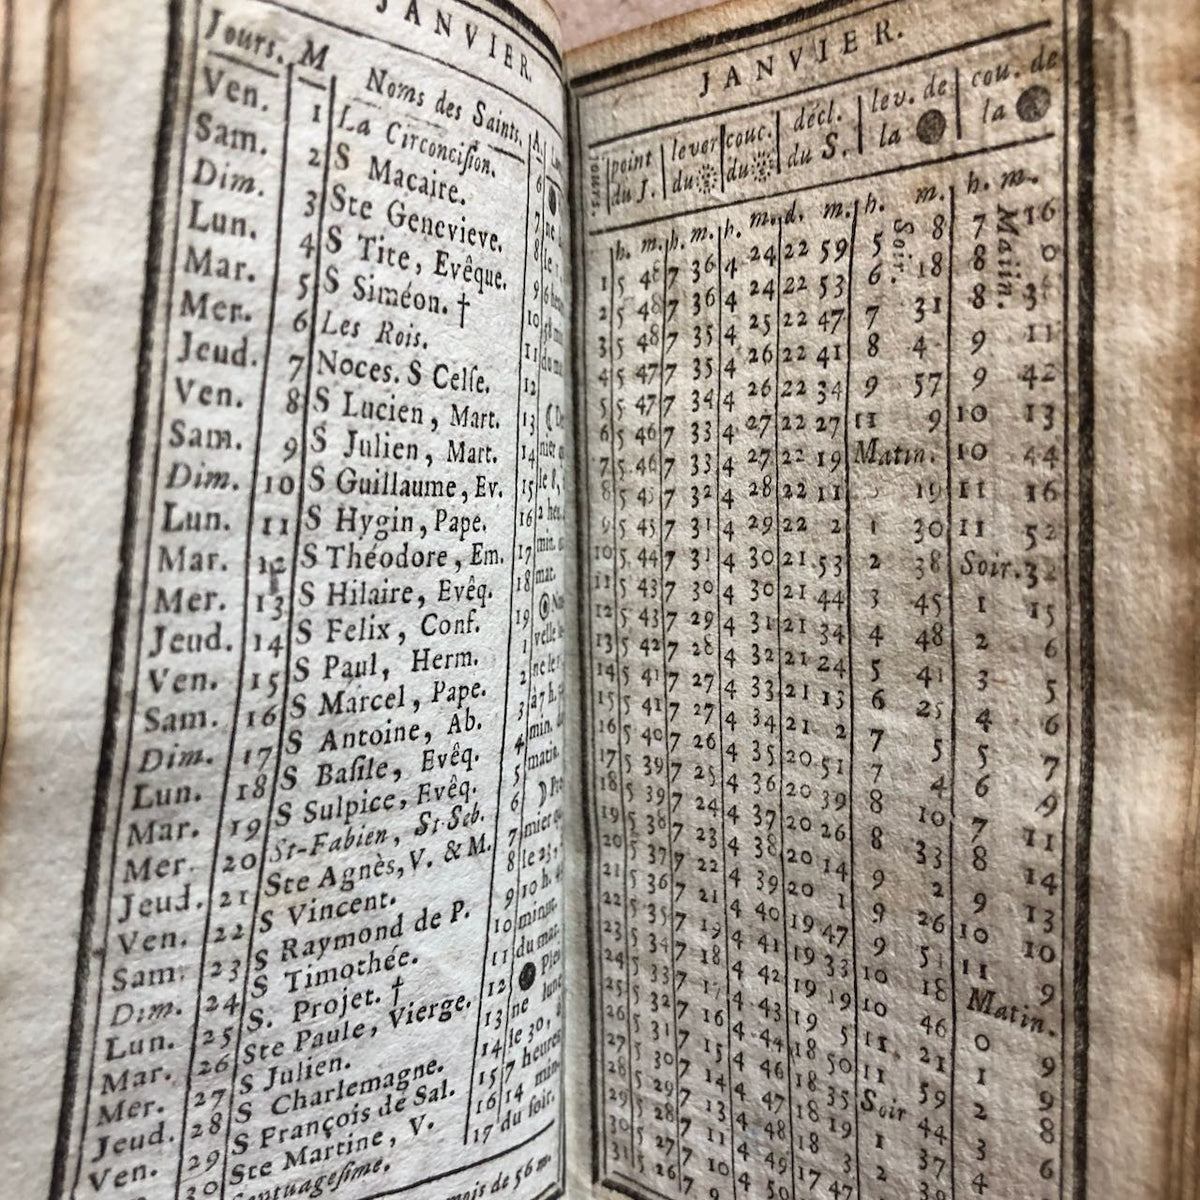 JANVIER.
Jours. M Noms des Saints. A.
Ven. 1 La Circoncision. 6
Sam. 2 S Macaire. 7
Dim. 3 Ste Genevieve. 8
Lun. 4 S Tite, Evêque. 9
Mar. 5 S Siméon. † 10
Mer. 6 Les Rois. 11
Jeud. 7 Noces. S Celse. 12
Ven. 8 S Lucien, Mart. 13
Sam. 9 S Julien, Mart. 14
Dim. 10 S Guillaume, Ev. 15
Lun. 11 S Hygin, Pape. 16
Mar. 12 S Théodore, Em. 17
Mer. 13 S Hilaire, Evêq. 18
Jeud. 14 S Felix, Conf. 19
Ven. 15 S Paul, Herm. 1
Sam. 16 S Marcel, Pape. 2
Dim. 17 S Antoine, Ab. 3
Lun. 18 S Basile, Evêq. 4
Mar. 19 S Sulpice, Evêq. 5
Mer. 20 St-Fabien, St-Seb. 6
Jeud. 21 Ste Agnès, V. & M. 7
Ven. 22 S Vincent. 8
Sam. 23 S Raymond de P. 9
Dim. 24 S Timothée. 10
Lun. 25 S. Projet. † 11
Mar. 26 Ste Paule, Vierge. 12
Mer. 27 S Julien. 13
Jeud. 28 S Charlemagne. 14
Ven. 29 S François de Sal. 15
30 Ste Martine, V. 16
17
du soir.
mois de 56 m.
JANVIER.
jours. point du J. lever du couc. du décl. du S. lev. de la cou. de la
h. m. h. m. h. m. d. m. h. m. h. m.
1 5 48 7 36 4 24 22 59 5 Soir. 8 7 Matin. 16
2 5 48 7 36 4 24 22 53 6 18 8 0
3 5 48 7 35 4 25 22 47 7 31 8
4 5 47 7 35 4 26 22 41 8 4 9 11
5 5 47 7 34 4 26 22 34 9 57 9 42
6 5 46 7 33 4 27 22 27 11 9 10 13
7 5 46 7 33 4 27 22 19 Matin. 10 44
8 5 45 7 32 4 28 22 11 19 11 16
9 5 45 7 31 4 29 22 2 1 30 11 52
10 5 44 7 31 4 30 21 53 2 38 Soir. 32
11 5 43 7 30 4 30 21 44 3 45 1 15
12 5 43 7 29 4 31 21 34 4 48 2 6
13 5 42 7 28 4 32 21 24 5 41 3 5
14 5 41 7 27 4 33 21 13 6 25 4 6
15 5 41 7 27 4 34 21 2 7 5 5 7
16 5 40 7 26 4 35 20 51 7 4 6 9
17 5 39 7 25 4 36 20 39 8 10 7 11
18 5 39 7 24 4 37 20 26 8 33 8 14
19 5 38 7 23 4 38 20 14 9 2 9 13
20 5 37 7 22 4 39 20 1 9 26 10 10
21 5 36 7 21 4 40 19 47 9 51 11 9
22 5 35 7 19 4 41 19 33 10 18 Matin.
23 5 34 7 18 4 42 19 19 10 46 0 9
24 5 33 7 17 4 43 19 5 11 21 1 9
25 5 32 7 16 4 44 18 50 11 59 2 8
26 5 31 7 15 4 46 18 35 Soir 44 3 6
27 5 30 7 14 4 47 18 19 1 37 4
28 5 29 7 13 4 48 18 3 2 39
29 5 28 7 11 4 49 17 47
30 5 27 7 10 4 50
31 5 26 7 9